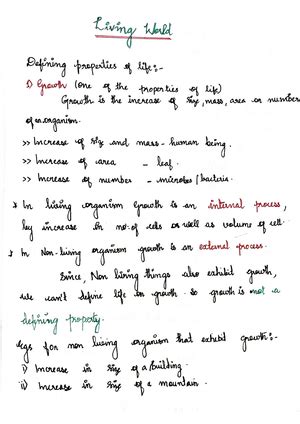 Living World
Defining properties of life:-
1) Growth (One of the properties of life)
Growth is the increase of size, mass, area or number
of an organism.
>> Increase of size and mass - human being.
>> Increase of area - leaf.
>> Increase of number - microbes/bacteria.
* In living organism Growth is an internal process,
by increase in no: of cells as well as volume of cell.
* In Non-living organism growth is an external process.
Since, Non living things also exhibit growth,
we can't define life on growth. so growth is not a
defining property.
egs for non living organism that exhibit growth:-
i) Increase in size of a building.
ii) Increase in size of a mountain.